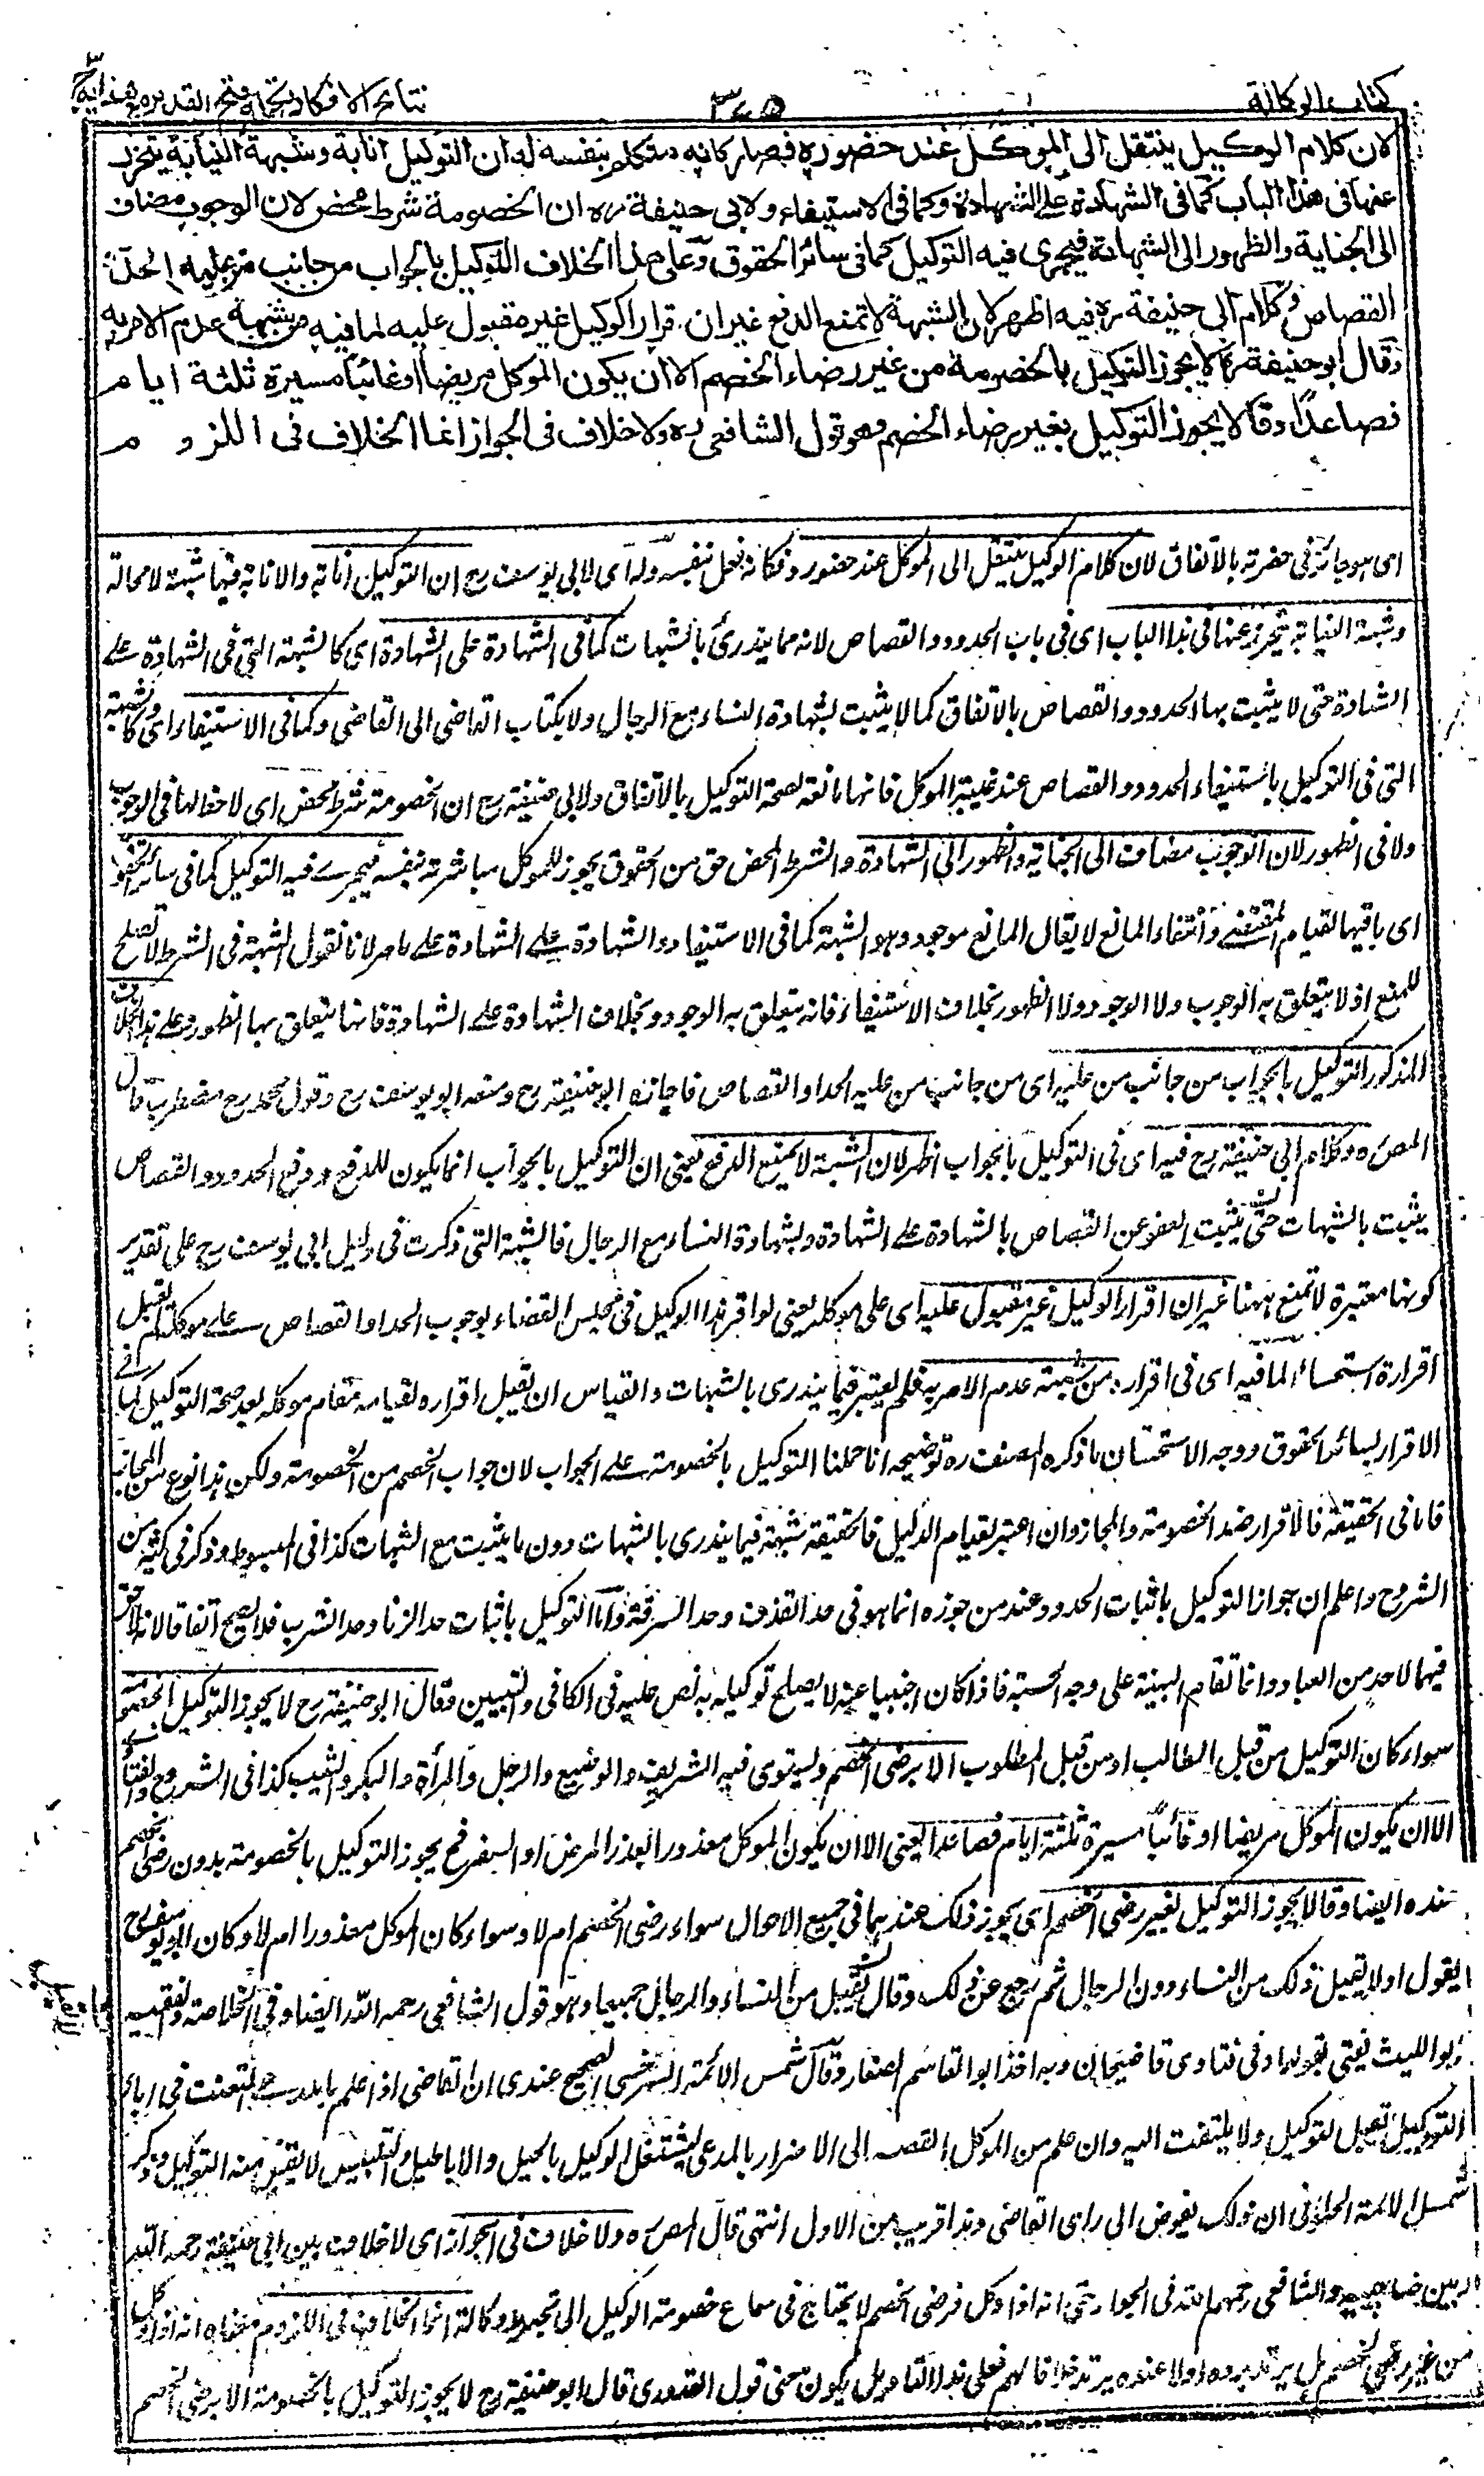 كتاب الوكالة
٣٧٥
نتائج الافكار تكملة فتح القدير مع هداية ج ٣
لان كلام الوكيل ينتقل الى الموكل عند حضوره فصار كانه متكلم بنفسه له ان التوكيل انابة وشبهة النيابة يتحرز
عنها فى هذا الباب كما فى الشهادة على الشهادة وكما فى الاستيفاء ولابى حنيفة ره ان الخصومة شرط محض لان الوجوب مضاف
الى الجناية والظهور الى الشهادة فيجرى فيه التوكيل كما فى سائر الحقوق وعلى هذا الخلاف التوكيل بالجواب من جانب من عليه الحد
القصاص وكلام ابى حنيفة ره فيه اظهر لان الشبهة لا تمنع الدفع غير ان اقرار الوكيل غير مقبول عليه لما فيه من شبهة عدم الامر به
وقال ابو حنيفة ره لا يجوز التوكيل بالخصومة من غير رضاء الخصم الا ان يكون الموكل مريضا او غائبا مسيرة ثلثة ايام
فصاعدا وقالا يجوز التوكيل بغير رضاء الخصم وهو قول الشافعى ره ولا خلاف فى الجواز انما الخلاف فى اللزوم
اى هو جائز فى حضرته بالاتفاق لان كلام الوكيل ينتقل الى الموكل عند حضوره فكانه فعل بنفسه وله اى لابى يوسف رح ان التوكيل انابة والانابة فيها شبهة لا محالة
وشبهة النيابة يتحرز عنها فى هذا الباب اى فى باب الحدود والقصاص لانه مما يندرئ بالشبهات كما فى الشهادة على الشهادة اى كالشبهة التى فى الشهادة على
الشهادة حتى لا يثبت بها الحدود والقصاص بالاتفاق كما لا يثبت بشهادة النساء مع الرجال ولا بكتاب القاضى الى القاضى وكما فى الاستيفاء اى وكالشبهة
التى فى التوكيل باستيفاء الحدود والقصاص عند غيبة الموكل فانها مانعة لصحة التوكيل بالاتفاق ولابى حنيفة رح ان الخصومة شرط محض اى لا حظ لها فى الوجوب
ولا فى الظهور لان الوجوب مضاف الى الجناية والظهور الى الشهادة والشرط المحض حق من الحقوق يجوز للموكل مباشرته بنفسه فيجرى فيه التوكيل كما فى سائر الحقوق
اى باقيها لقيام المقتضى وانتفاء المانع لا يقال المانع موجود وهو الشبهة كما فى الاستيفاء والشهادة على الشهادة على ما مر لانا نقول الشبهة فى الشرط لا تصلح
للمنع اذ لا يتعلق به الوجوب ولا الوجود ولا الظهور بخلاف الاستيفاء فانه يتعلق به الوجود وبخلاف الشهادة على الشهادة فانها يتعلق بها الظهور وعلى هذا الخلاف
المذكور التوكيل بالجواب من جانب من عليه اى من جانب من عليه الحد او القصاص فاجازه ابو حنيفة رح ومنعه ابو يوسف رح وقول محمد رح مضطرب قال
المص ره وكلام ابى حنيفة رح فيه اى فى التوكيل بالجواب اظهر لان الشبهة لا تمنع الدفع يعنى ان التوكيل بالجواب انما يكون للدفع ودفع الحدود والقصاص
يثبت بالشبهات حتى يثبت العفو عن القصاص بالشهادة على الشهادة وبشهادة النساء مع الرجال فالشبهة التى ذكرت فى دليل ابى يوسف رح على تقدير
كونها معتبرة لا تمنع ههنا غير ان اقرار الوكيل غير مقبول عليه اى على موكله يعنى لو اقر هذا الوكيل فى مجلس القضاء بوجوب الحد او القصاص على موكله لم يقبل
اقراره استحسانا لما فيه اى فى اقراره من شبهة عدم الامر به فلم يعتبر فيما يندرئ بالشبهات والقياس ان يقبل اقراره لقيامه مقام موكله بعد صحة التوكيل كما فى
الاقرار بسائر الحقوق ووجه الاستحسان ما ذكره المصنف ره توضيحه انا حملنا التوكيل بالخصومة على الجواب لان جواب الخصم من الخصومة ولكن هذا نوع من المجاز
فاما فى الحقيقة فالاقرار ضد الخصومة والمجاز وان اعتبر لقيام الدليل فالحقيقة شبهة فيما يندرئ بالشبهات دون ما يثبت مع الشبهات كذا فى المبسوط وذكر فى كثير من
الشروح واعلم ان جواز التوكيل باثبات الحدود عند من جوزه انما هو فى حد القذف وحد السرقة واما التوكيل باثبات حد الزنا وحد الشرب فلا يصح اتفاقا لانه لا حق
فيهما لاحد من العباد وانما تقام البينة على وجه الحسبة فاذا كان اجنبيا عنه لا يصلح توكيله به نص عليه فى الكافى والتبيين وقال ابو حنيفة رح لا يجوز التوكيل بالخصومة
سواء كان التوكيل من قبل الطالب او من قبل المطلوب الا برضى الخصم ويستوى فيه الشريف والوضيع والرجل والمرأة والبكر والثيب كذا فى الشروح والفتاوى
الا ان يكون الموكل مريضا او غائبا مسيرة ثلثة ايام فصاعدا يعنى الا ان يكون الموكل معذورا بعذر المرض او السفر فح يجوز التوكيل بالخصومة بدون رضى الخصم
عنده ايضا وقالا يجوز التوكيل بغير رضى الخصم اى يجوز ذلك عندهما فى جميع الاحوال سواء رضى الخصم ام لا وسواء كان الموكل معذورا ام لا وكان ابو يوسف رح
يقول اولا يقبل ذلك من النساء دون الرجال ثم رجع عن ذلك وقال يقبل من النساء والرجال جميعا وهو قول الشافعى رحمه الله ايضا وفى الخلاصة والفقيه
ابو الليث يفتى بقولهما وفى فتاوى قاضيخان وبه اخذ ابو القاسم الصفار وقال شمس الائمة السرخسى الصحيح عندى ان القاضى اذا علم بالمدعى التعنت فى اباء
التوكيل يقبل التوكيل ولا يلتفت اليه وان علم من الموكل القصد الى الاضرار بالمدعى ليشتغل الوكيل بالحيل والاباطيل والتلبيس لا يقبل منه التوكيل وذكر
شمس الائمة الحلوانى ان ذلك يفوض الى راى القاضى وهذا قريب من الاول انتهى قال المص ره ولا خلاف فى الجواز اى لا خلاف بين ابى حنيفة رحمه الله
وبين صاحبيه والشافعى رحمهم الله فى الجواز حتى انه اذا وكل فرضى الخصم لا يحتاج فى سماع خصومة الوكيل الى تجديد وكالة انما الخلاف فى اللزوم معناه انه اذا وكل
من غير رضى الخصم هل يرتد برده او لا عنده يرتد خلافا لهم فعلى هذا التاويل يكون معنى قول القدورى قال ابو حنيفة رح لا يجوز التوكيل بالخصومة الا برضى الخصم